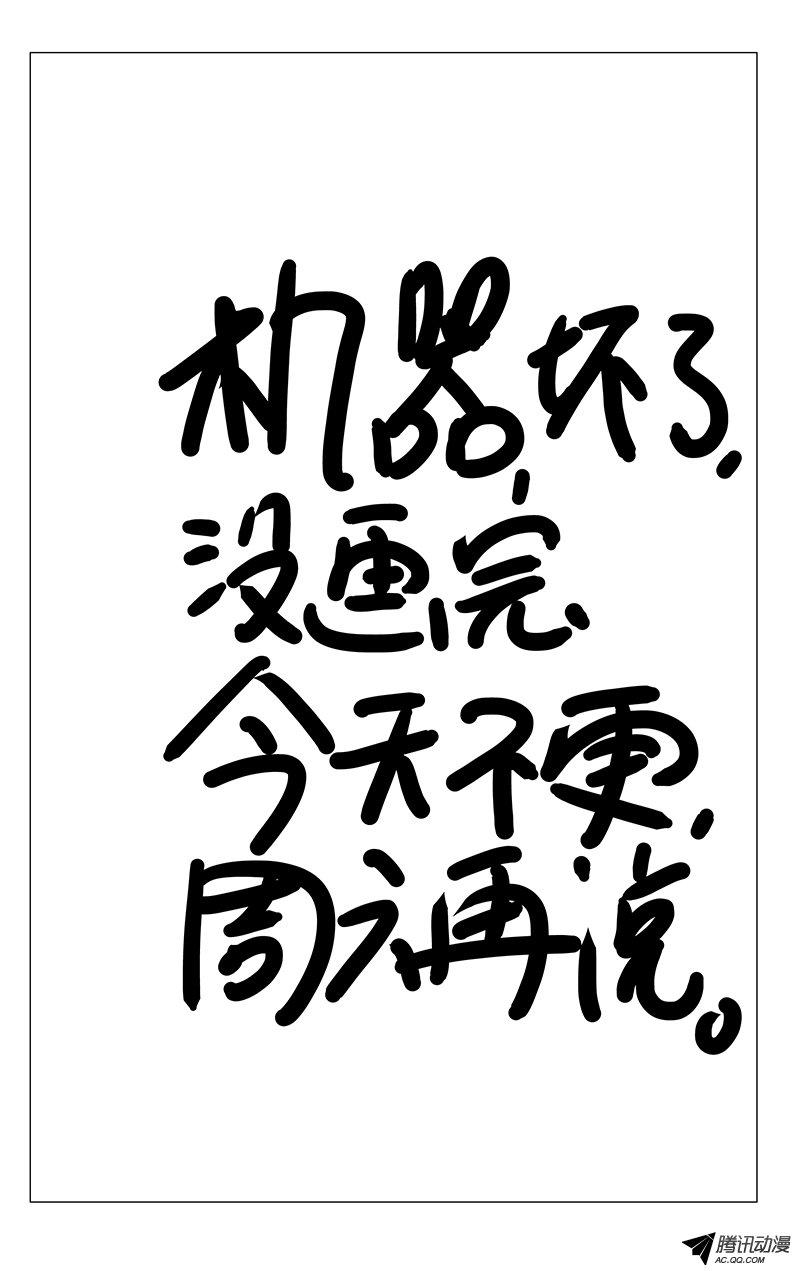 机器坏了,
没画完,
今天不更,
周六再说。
腾讯动漫
AC.QQ.COM